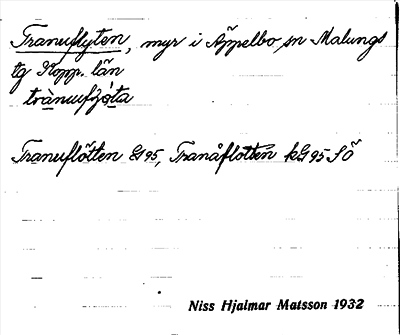 Tranuflyten, myr i Äppelbo sn Malungs
tg Kopp. län
Tranuflötten G95, Tranåflotten kG95 SÖ
Niss Hjalmar Matsson 1932